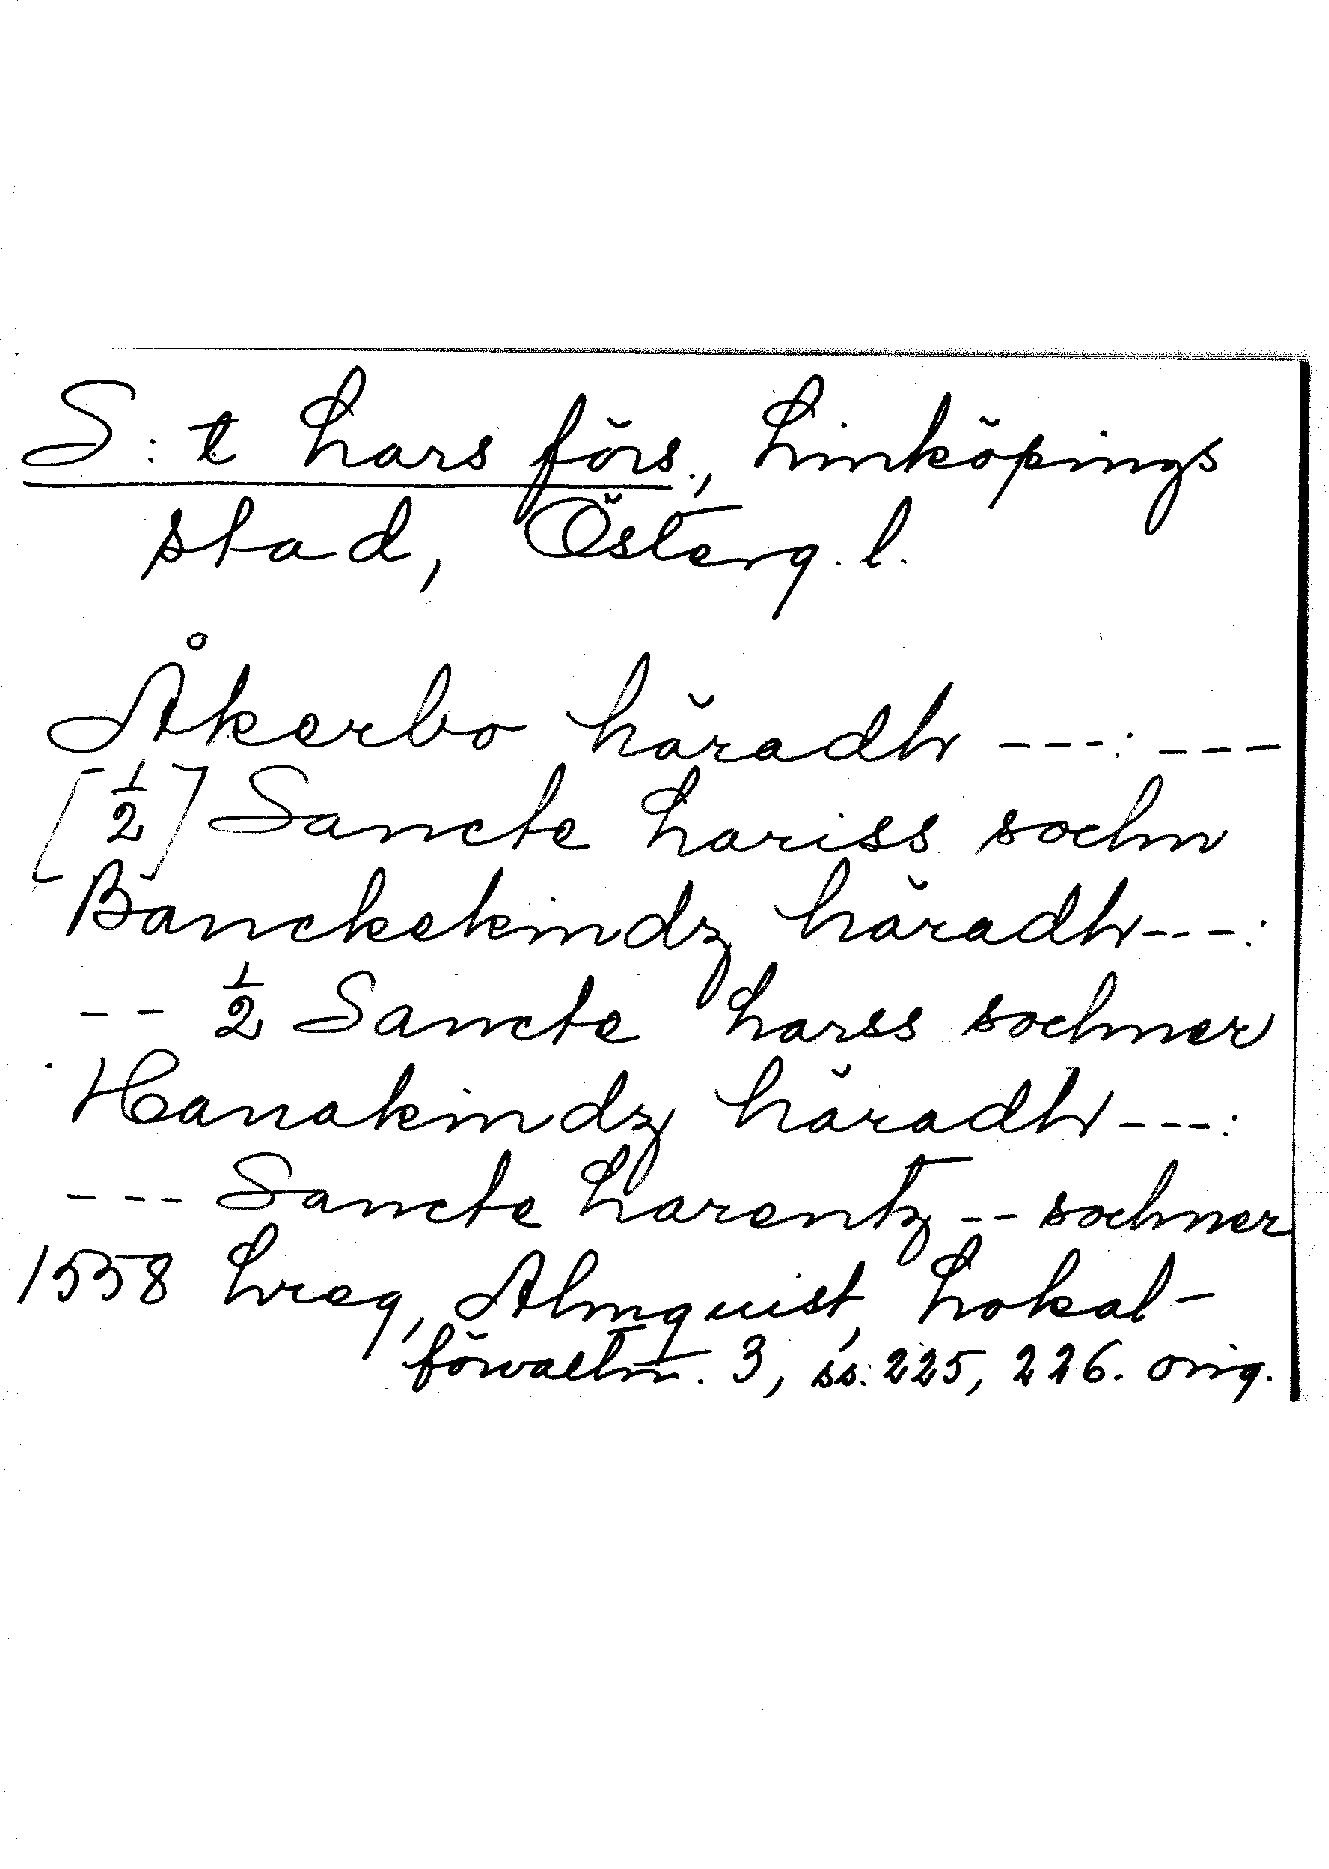 S:t Lars förs., Linköpings
stad, Österg. l.
Åkerbo häradh ---:---
[½] Sancte Lariss sochn
Banckekindz häradh---:
-- ½ Sancte Larss sochner
Hanakindz häradh---:
--- Sancte Larentz -- sochner
1558 Lreg, Almquist, Lokal-
förvaltn. 3, ss. 225, 226. orig.